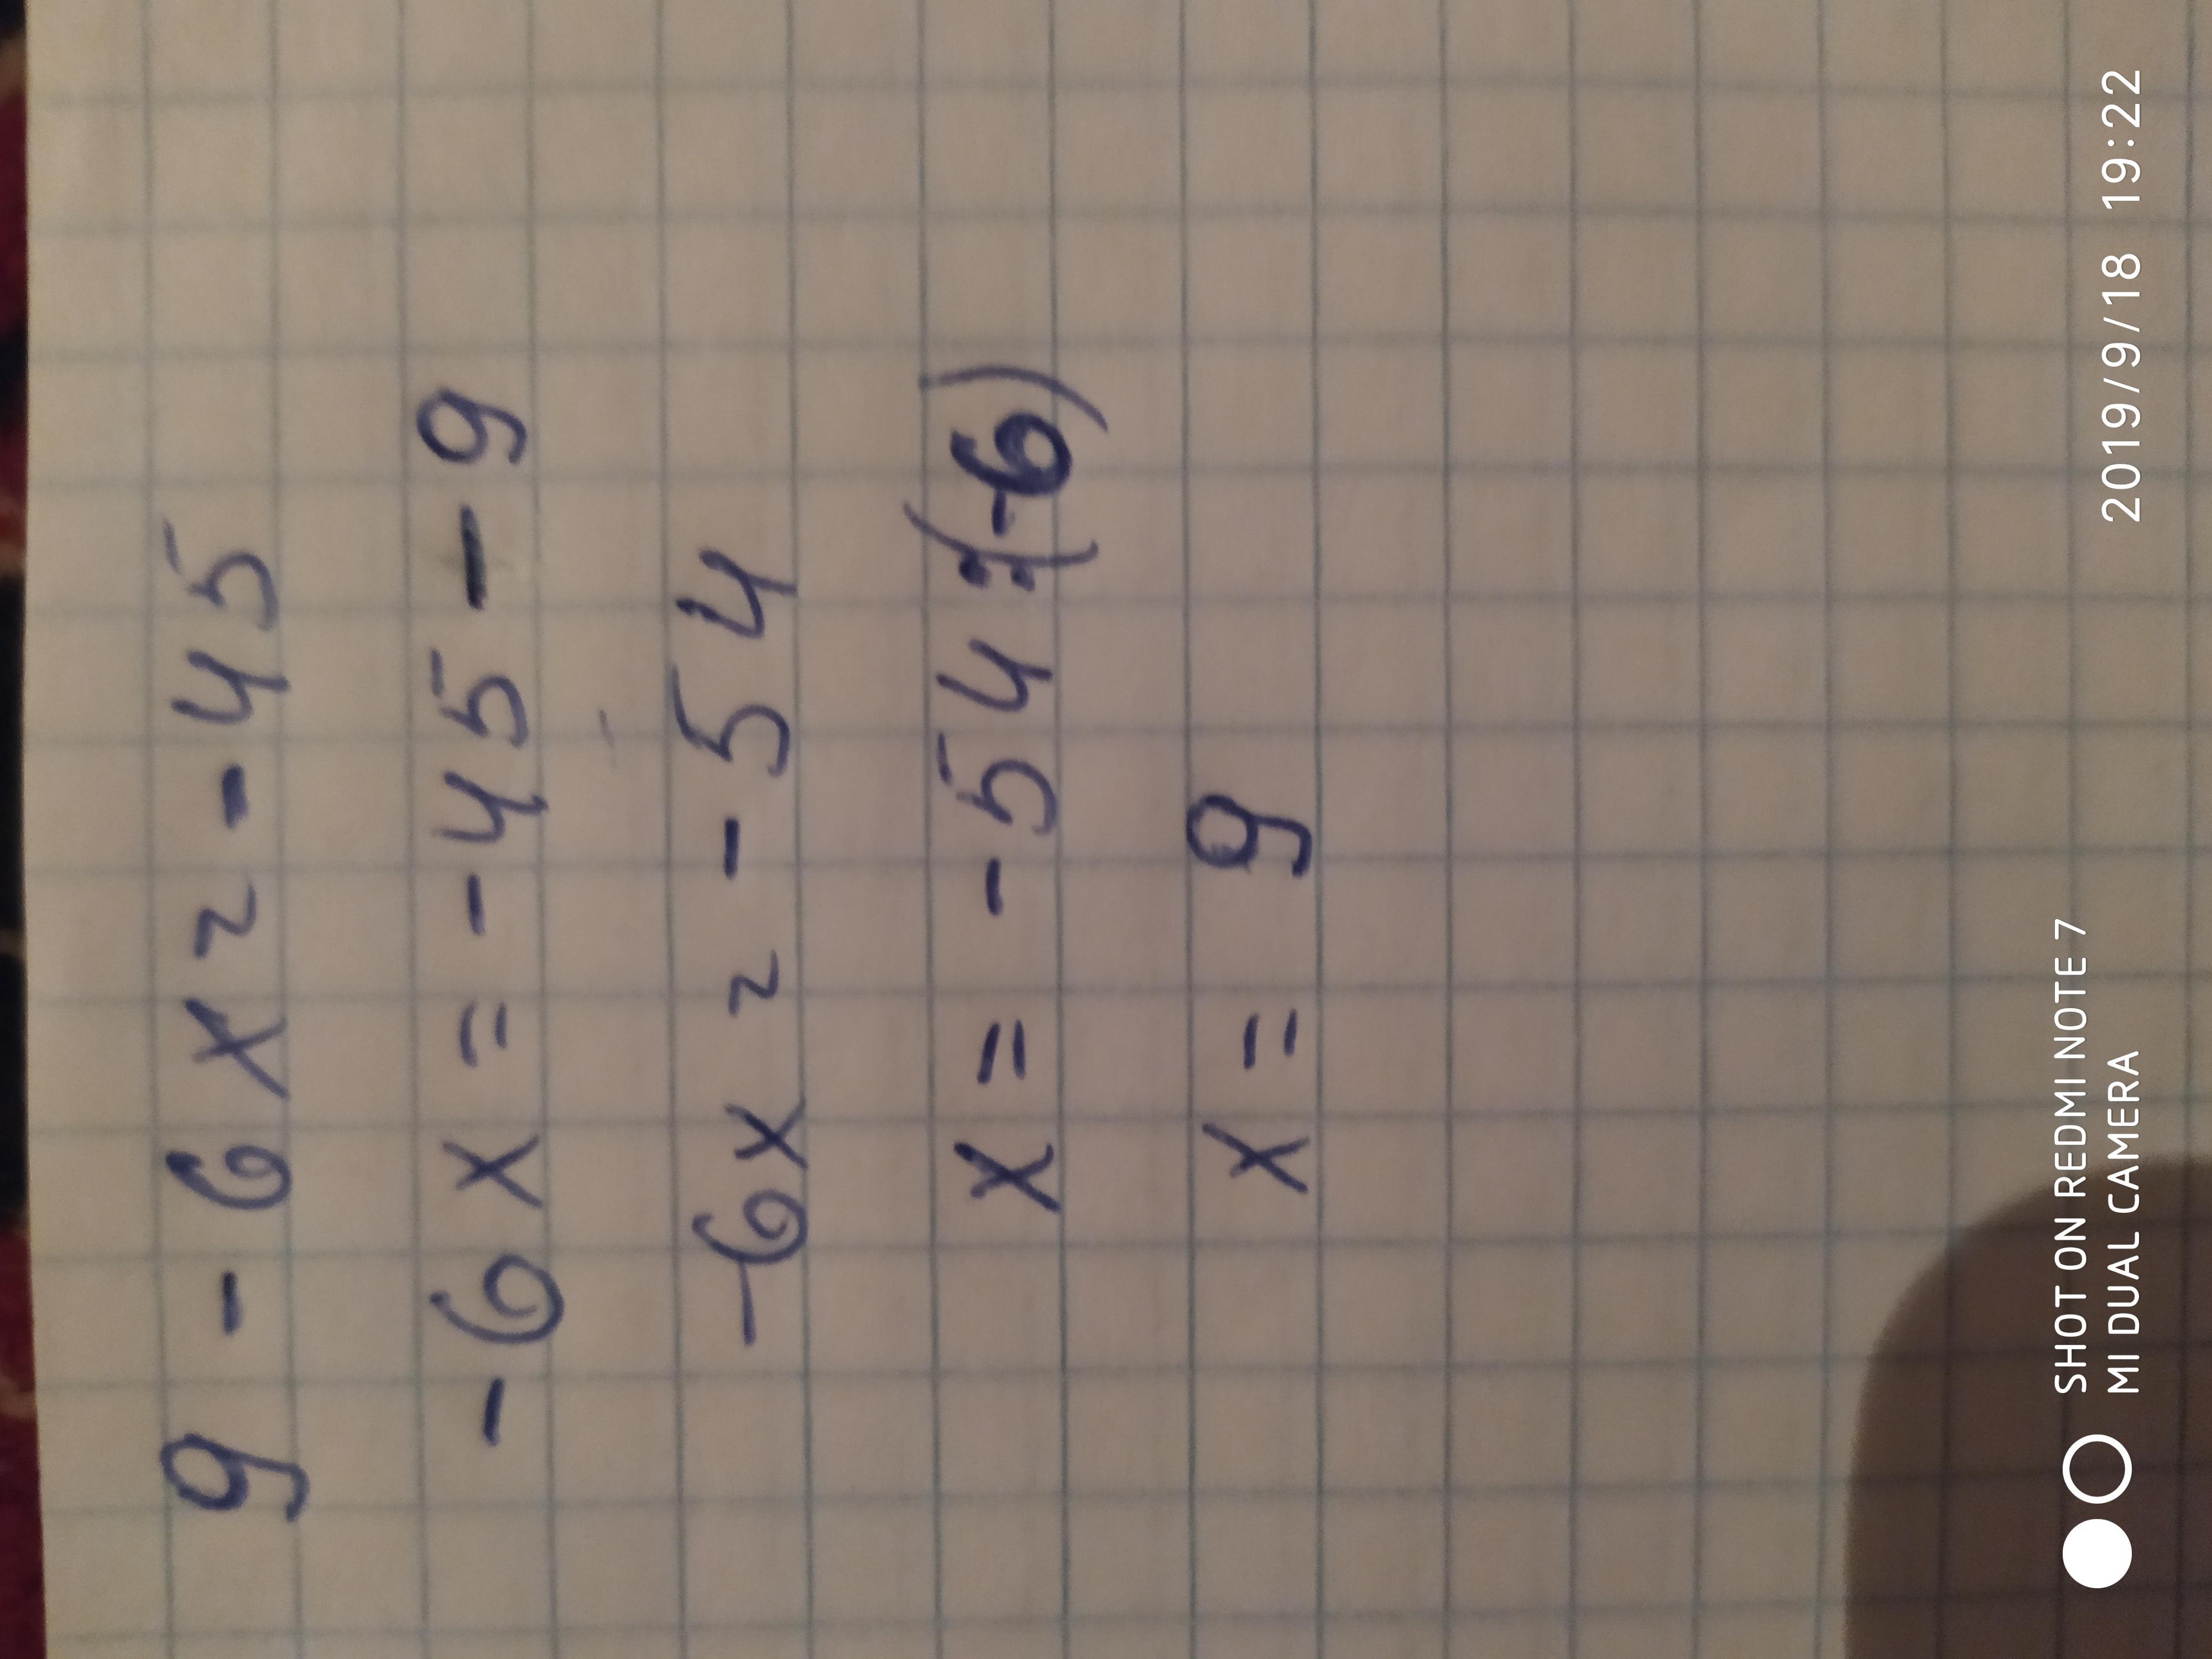 9 - 6x = -45
-6x = -45 - 9
-6x = -54
x = -54:(-6)
x = 9
SHOT ON REDMI NOTE 7
MI DUAL CAMERA
2019/9/18 19:22